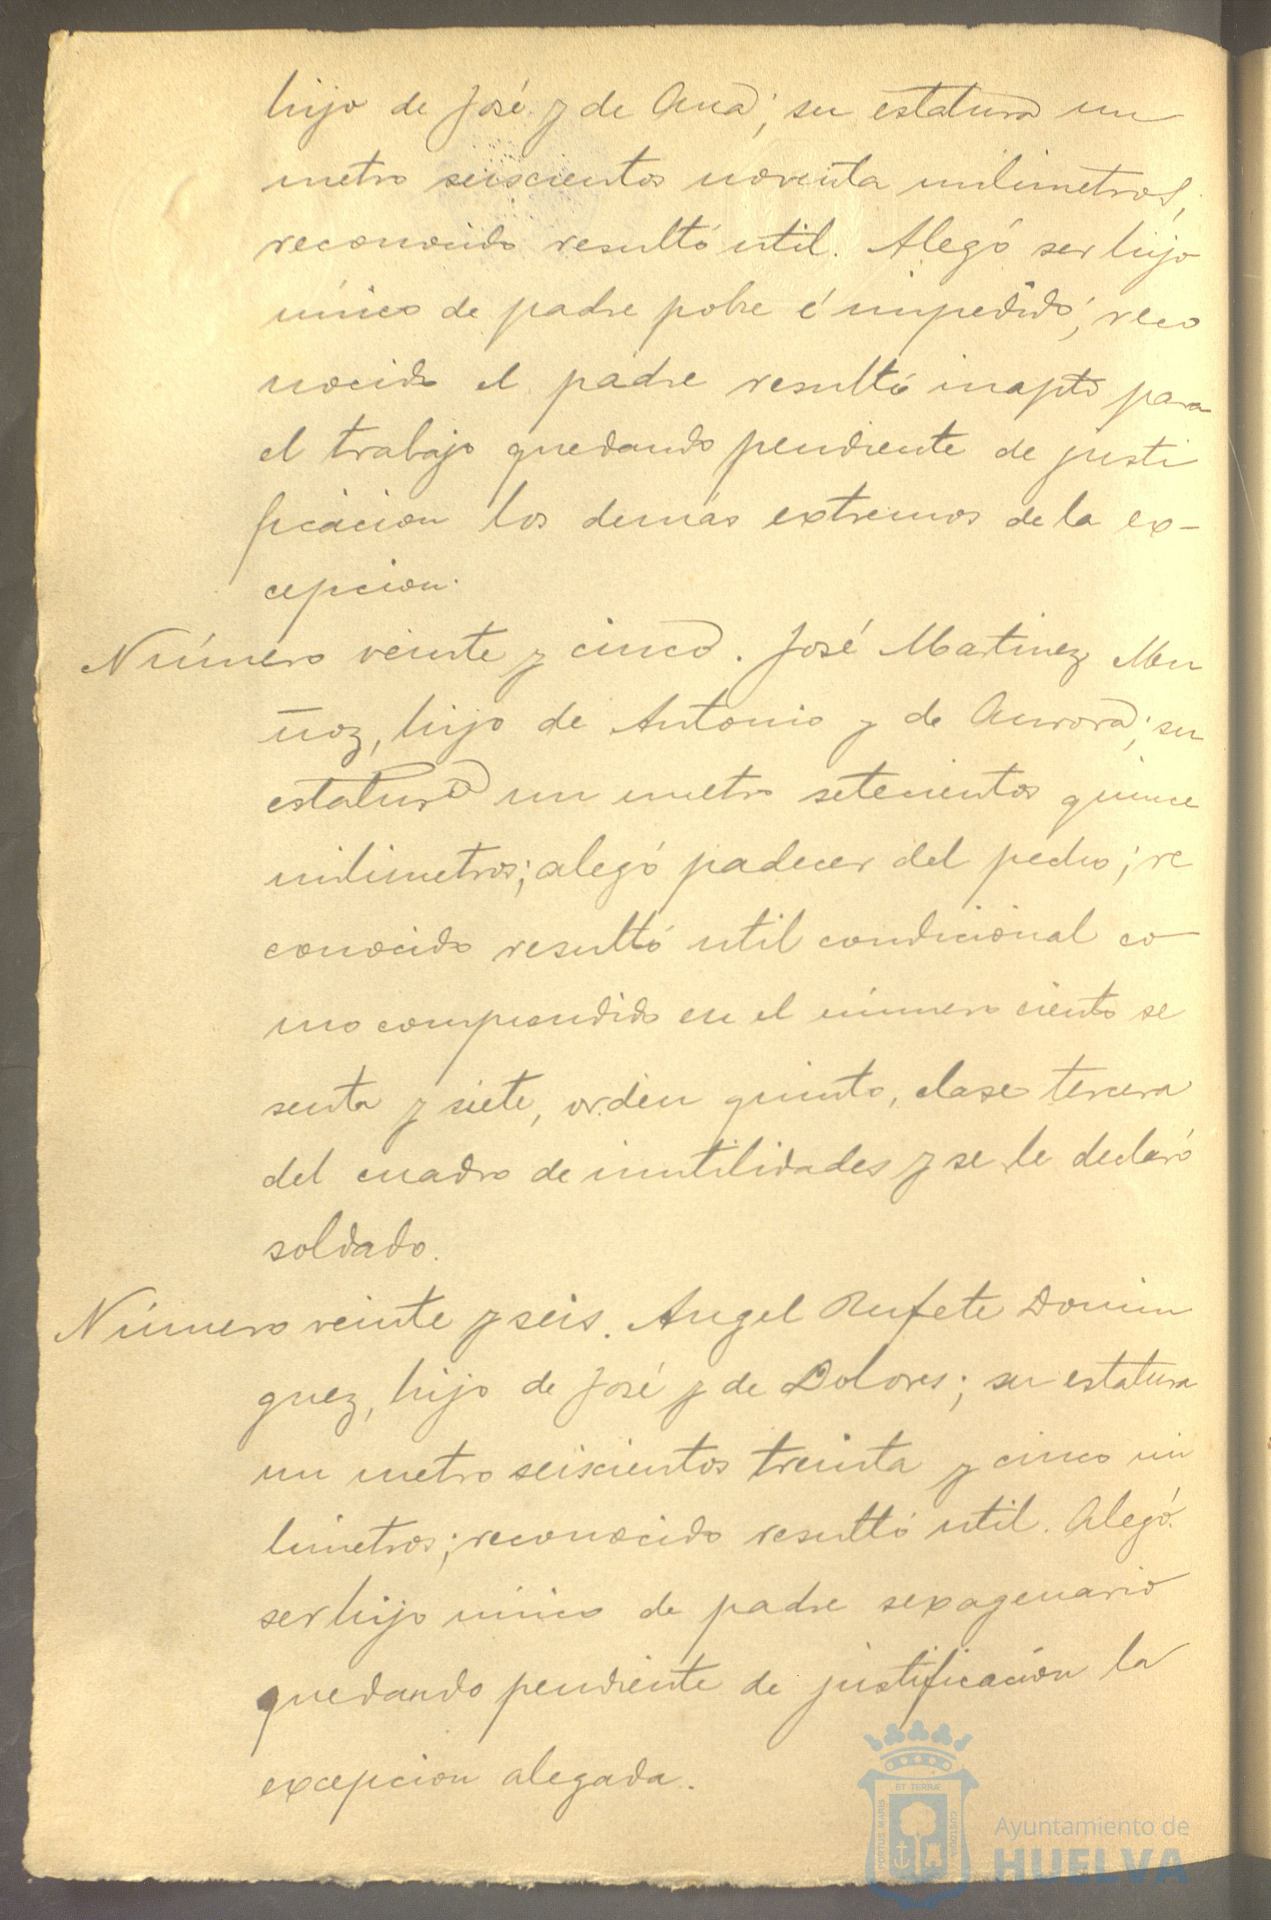 hijo de José y de Ana; su estatura un
metro seiscientos noventa milimetros,
reconocido resultó util. Alegó ser hijo
único de padre pobre é impedido; reco
nocido el padre resultó inapto para
el trabajo quedando pendiente de justi
ficacion los demás extremos de la ex-
cepcion.
Número veinte y cinco. José Martinez Mu
ñoz, hijo de Antonio y de Aurora; su
estatura un metro setecientos quince
milimetros; alegó padecer del pecho; re
conocido resultó util condicional co
mo comprendido en el número ciento se
senta y siete, orden quinto, clase tercera
del cuadro de inutilidades y se le declaró
soldado.
Número veinte y seis. Angel Rufete Domin
guez, hijo de José y de Dolores; su estatura
un metro seiscientos treinta y cinco mi
limetros; reconocido resultó util. Alegó
ser hijo único de padre sexagenario
quedando pendiente de justificación la
excepcion alegada.
ET TERRÆ
PORTUS MARIS
CUSTODIA
Ayuntamiento de
HUELVA